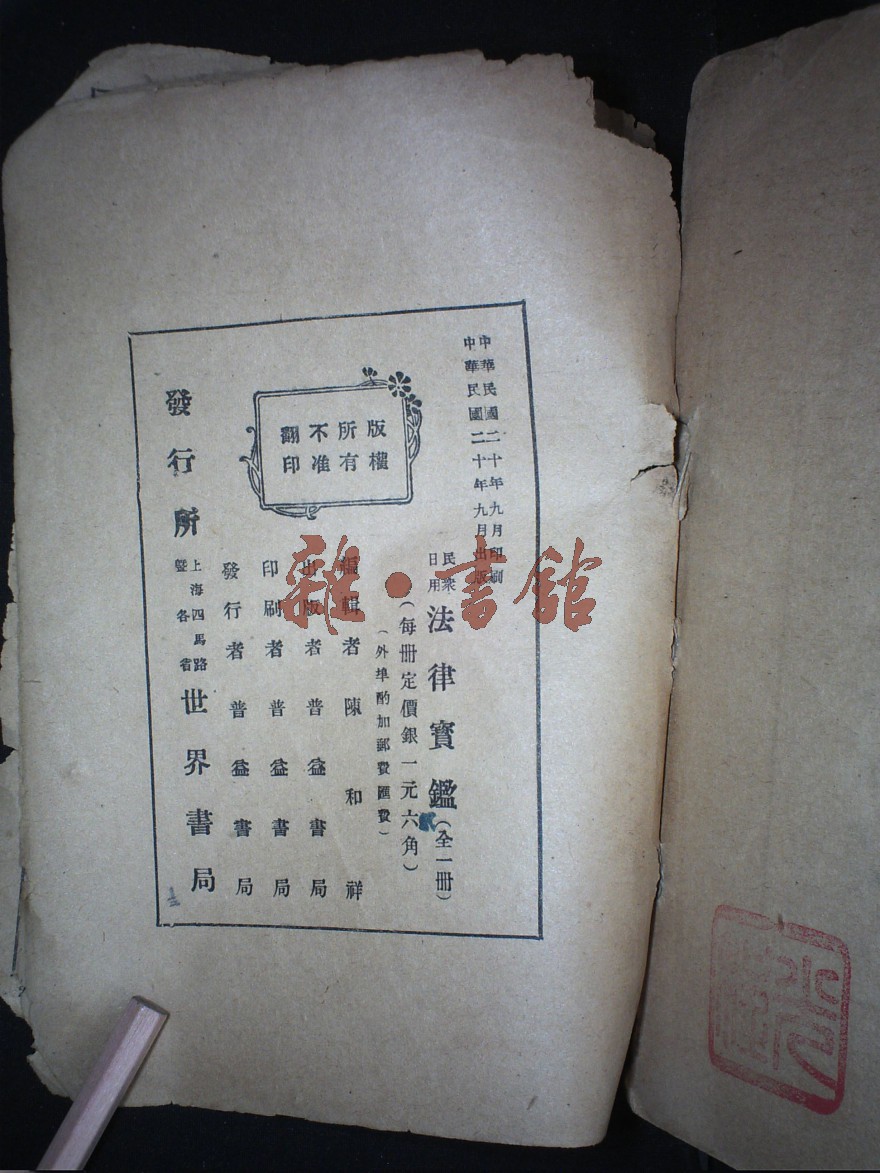 中華民國二十年九月印刷
中華民國二十年九月出版
民衆日用法律寶鑑(全一冊)
(每冊定價銀一元六角)
(外埠酌加郵費匯費)
版權所有
不准翻印
編輯者 陳和祥
出版者 普益書局
印刷者 普益書局
發行者 普益書局
發行所 上海四馬路暨各省 世界書局
雜·書館